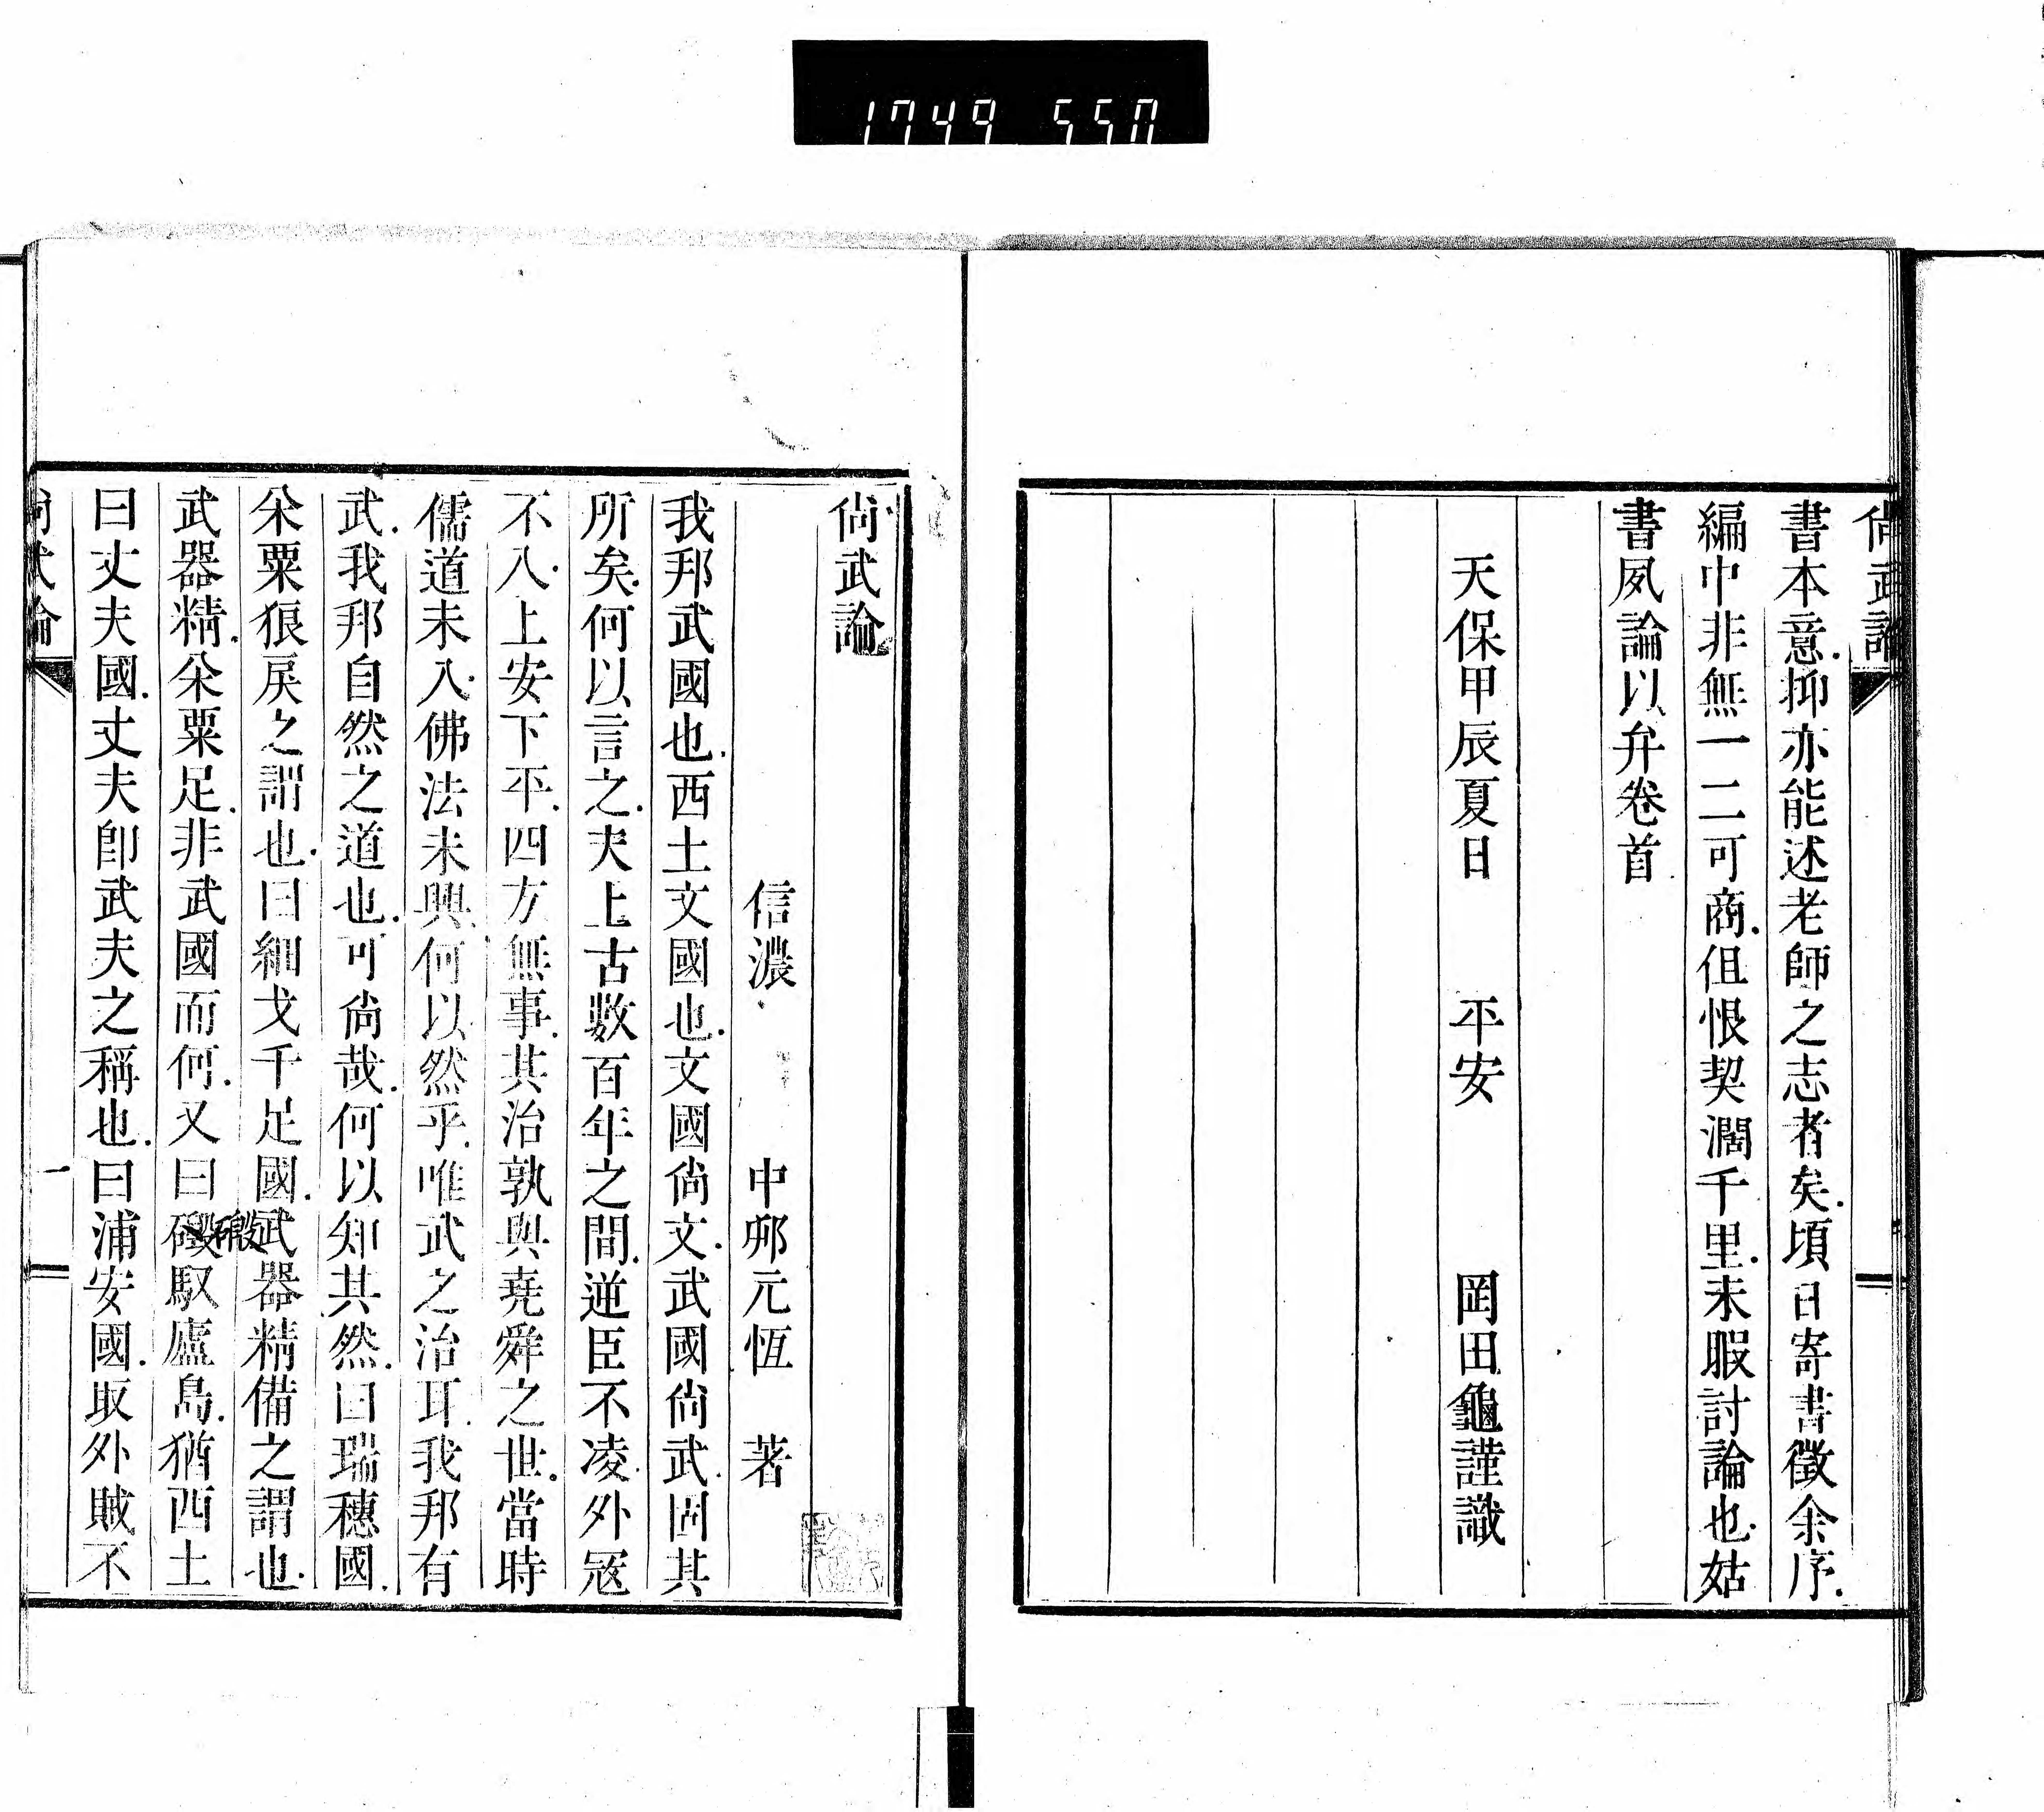 1749 550
尚武論
書本意.抑亦能述老師之志者矣.頃日寄書徵余序.
編中非無一二可商.但恨契濶千里.未暇討論也.姑
書夙論以弁卷首
天保甲辰夏日 平安 岡田龜謹識
尚武論
信濃 中邨元恆 著
我邦武國也.西土文國也.文國尚文.武國尚武.固其
所矣.何以言之.夫上古數百年之間.逆臣不凌.外冦
不入.上安下平.四方無事.其治孰與堯舜之世.當時
儒道未入.佛法未興.何以然乎.唯武之治耳.我邦有
武.我邦自然之道也.可尚哉.何以知其然.曰瑞穗國.
籴粟狼戾之謂也.曰細戈千足國.武器精備之謂也.
武器精.籴粟足.非武國而何.又曰磤馭廬島.猶西土
磤
曰丈夫國.丈夫卽武夫之稱也.曰浦安國.取外賊不
尚武論
一